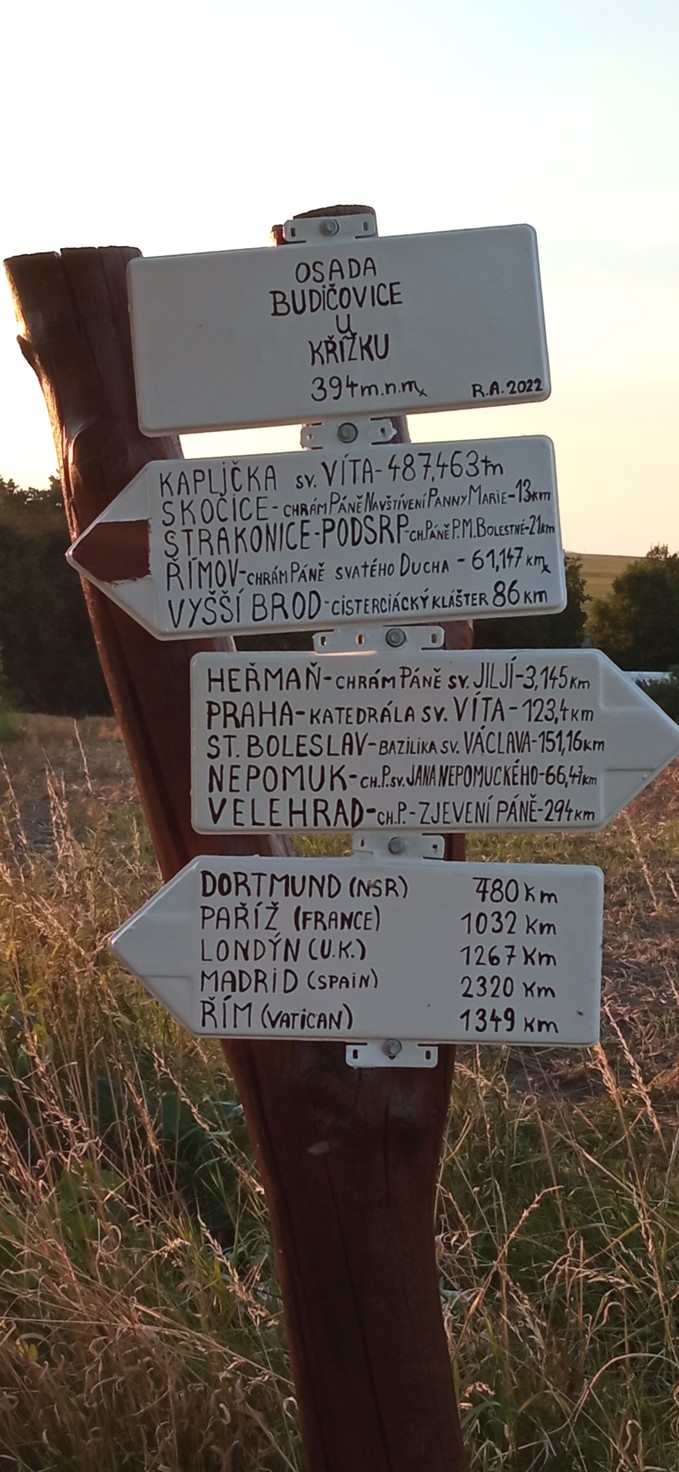 OSADA
BUDIČOVICE
U
KŘÍŽKU
394 m.n.m.
R.A. 2022
KAPLIČKA SV. VÍTA - 487,463 m
SKOČICE - CHRÁM PÁNĚ NAVŠTÍVENÍ PANNY MARIE - 13 km
STRAKONICE - PODSRP - CH. PÁNĚ P.M. BOLESTNÉ - 21 km
ŘÍMOV - CHRÁM PÁNĚ SVATÉHO DUCHA - 61,147 km
VYŠŠÍ BROD - CISTERCIÁCKÝ KLÁŠTER 86 km
HEŘMAŇ - CHRÁM PÁNĚ SV. JILJÍ - 3,145 km
PRAHA - KATEDRÁLA SV. VÍTA - 123,4 km
ST. BOLESLAV - BAZILIKA SV. VÁCLAVA - 151,16 km
NEPOMUK - CH.P. SV. JANA NEPOMUCKÉHO - 66,47 km
VELEHRAD - CH.P. - ZJEVENÍ PÁNĚ - 294 km
DORTMUND (NSR) 780 km
PAŘÍŽ (FRANCE) 1032 km
LONDÝN (U.K.) 1267 km
MADRID (SPAIN) 2320 km
ŘÍM (VATICAN) 1349 km